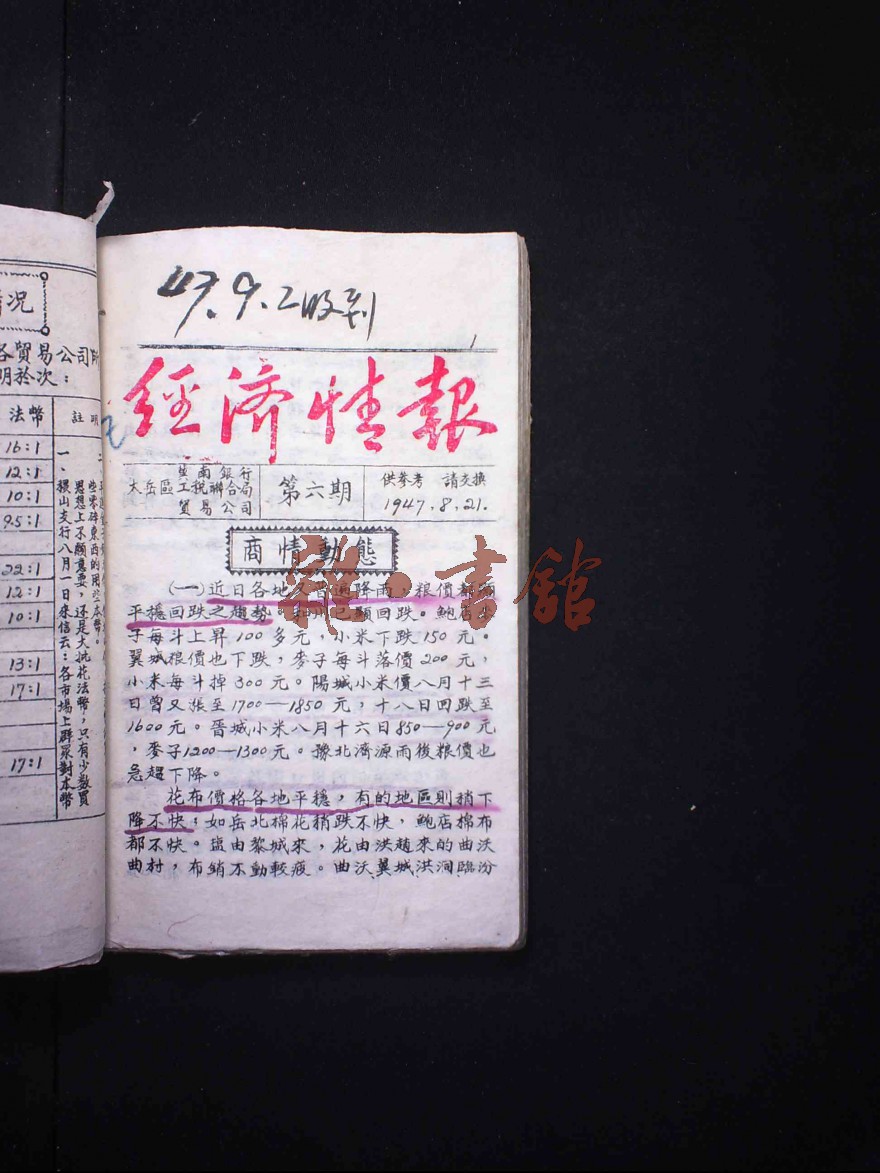 47.9.2收到
1
經濟情報
大岳區
冀南銀行
工稅聯合局
貿易公司
第六期
供參考 請交換
1947.8.21.
商情動態
(一)近日各地又普遍降雨,粮價都
平穩回跌之趨勢。 已顯回跌。鮑店
子每斗上昇100多元,小米下跌150元。
翼城粮價也下跌,麥子每斗落價200元,
小米每斗掉300元。陽城小米價八月十三
日曾又漲至1700—1850元,十八日回跌至
1600元。晋城小米八月十六日850—900元
,麥子1200—1300元。豫北濟源雨後粮價也
急趨下降。
花布價格各地平穩,有的地區則稍下
降不快;如岳北棉花稍跌不快,鮑店棉布
都不快。鹽由黎城來,花由洪趙來的曲沃
曲村,布銷不動較疲。曲沃翼城洪洞臨汾
雜·書館
况
各貿易公司
明於次:
法幣
註明
16:1
12:1
10:1
9.5:1
22:1
12:1
10:1
13:1
17:1
17:1
些零碎東西的用些本幣。
思想上不願意要,还是大批花法幣,只有少数買
一、稷山支行八月一日來信云:各市場上群眾對本幣